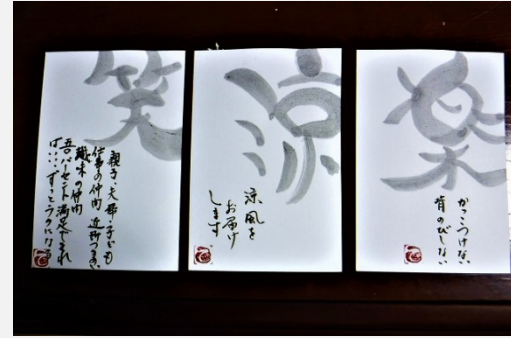 笑
親子・夫婦・子ども
仕事の仲間 近所つきあい
趣味の仲間
パーセント満足できれ
ば・・・ずっとラクになる
涼
涼風を
お届け
します
楽
かっこつけない
背のびしない